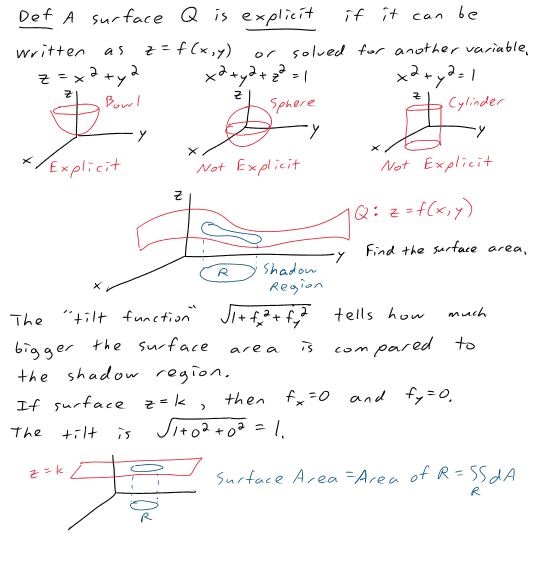 Def A surface Q is explicit if it can be
written as z = f(x,y) or solved for another variable.
z = x² + y² x² + y² + z² = 1 x² + y² = 1
z Bowl z Sphere z Cylinder
y y y
x Explicit x Not Explicit x Not Explicit
z
Q: z = f(x,y)
y Find the surface area.
R Shadow
Region
x
The "tilt function" √1 + fₓ² + f_y² tells how much
bigger the surface area is compared to
the shadow region.
If surface z = k, then fₓ = 0 and f_y = 0.
The tilt is √1 + 0² + 0² = 1.
z = k
Surface Area = Area of R = ∫∫ dA
R
R